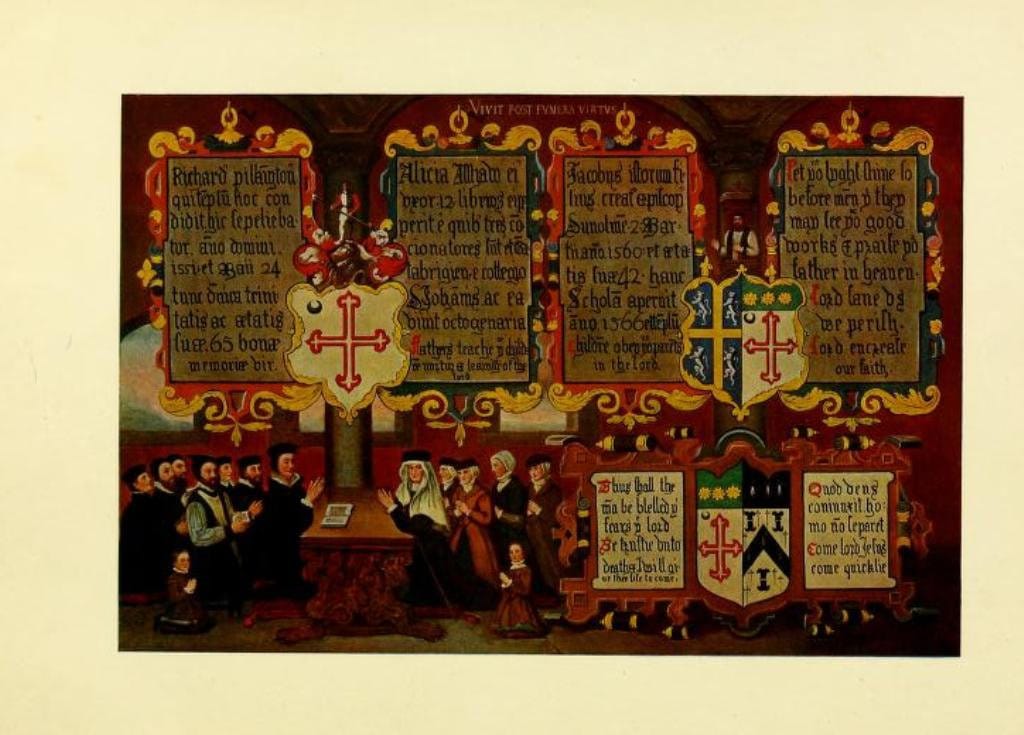 VIVIT POST FVNERA VIRTVS
Richard pilkington
qui teplū hoc con
didit hic sepelieba
tur. año domini
1551 et Maii 24
tunc dñica trini
tatis ac ætatis
suæ. 65 bonæ
memoriæ vir.
Alicia
vxor 12 liberos
perit è quib tres cō
cionatores sūt
collegio
Johanis ac ea
vivit octogenaria
Fathers teache yͬ child
nurtur & learninge of the
lord
Jacobus istorum fi
lius creat̃ episcop
Dunolmẽ. 2. Mar
tii anõ 1560 et æta
tis suæ 42. hanc
Scholā aperuit
año. 1566
Childrē obey yoͬ parēts
in the lord.
Let yoͬ lyght shine so
before men yͭ they
may see yoͬ good
works & praise yoͬ
father in heauen.
Lord saue vs
we perish.
Lord encrease
our faith.
Thus shall the
mā be blessed yͭ
fears yͤ lord
Be faithfull vnto
death & I will gi
ve thee life to come.
Quod deus
coniunxit ho
mo nō separet
Come lord Jesus
come quicklie